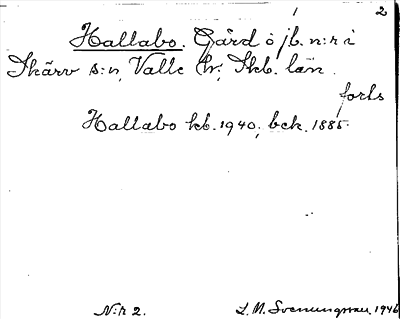 1 2
Hallabo. Gård ö jb. n:r i
Skärv s:n, Valle hr; Skb. län.
forts
Hallabo kb. 1940; bek. 1885.
N:r 2. L. M. Svenungsson 1946